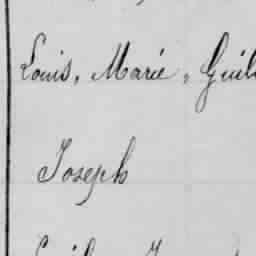 Louis, Marie, Guil
Joseph